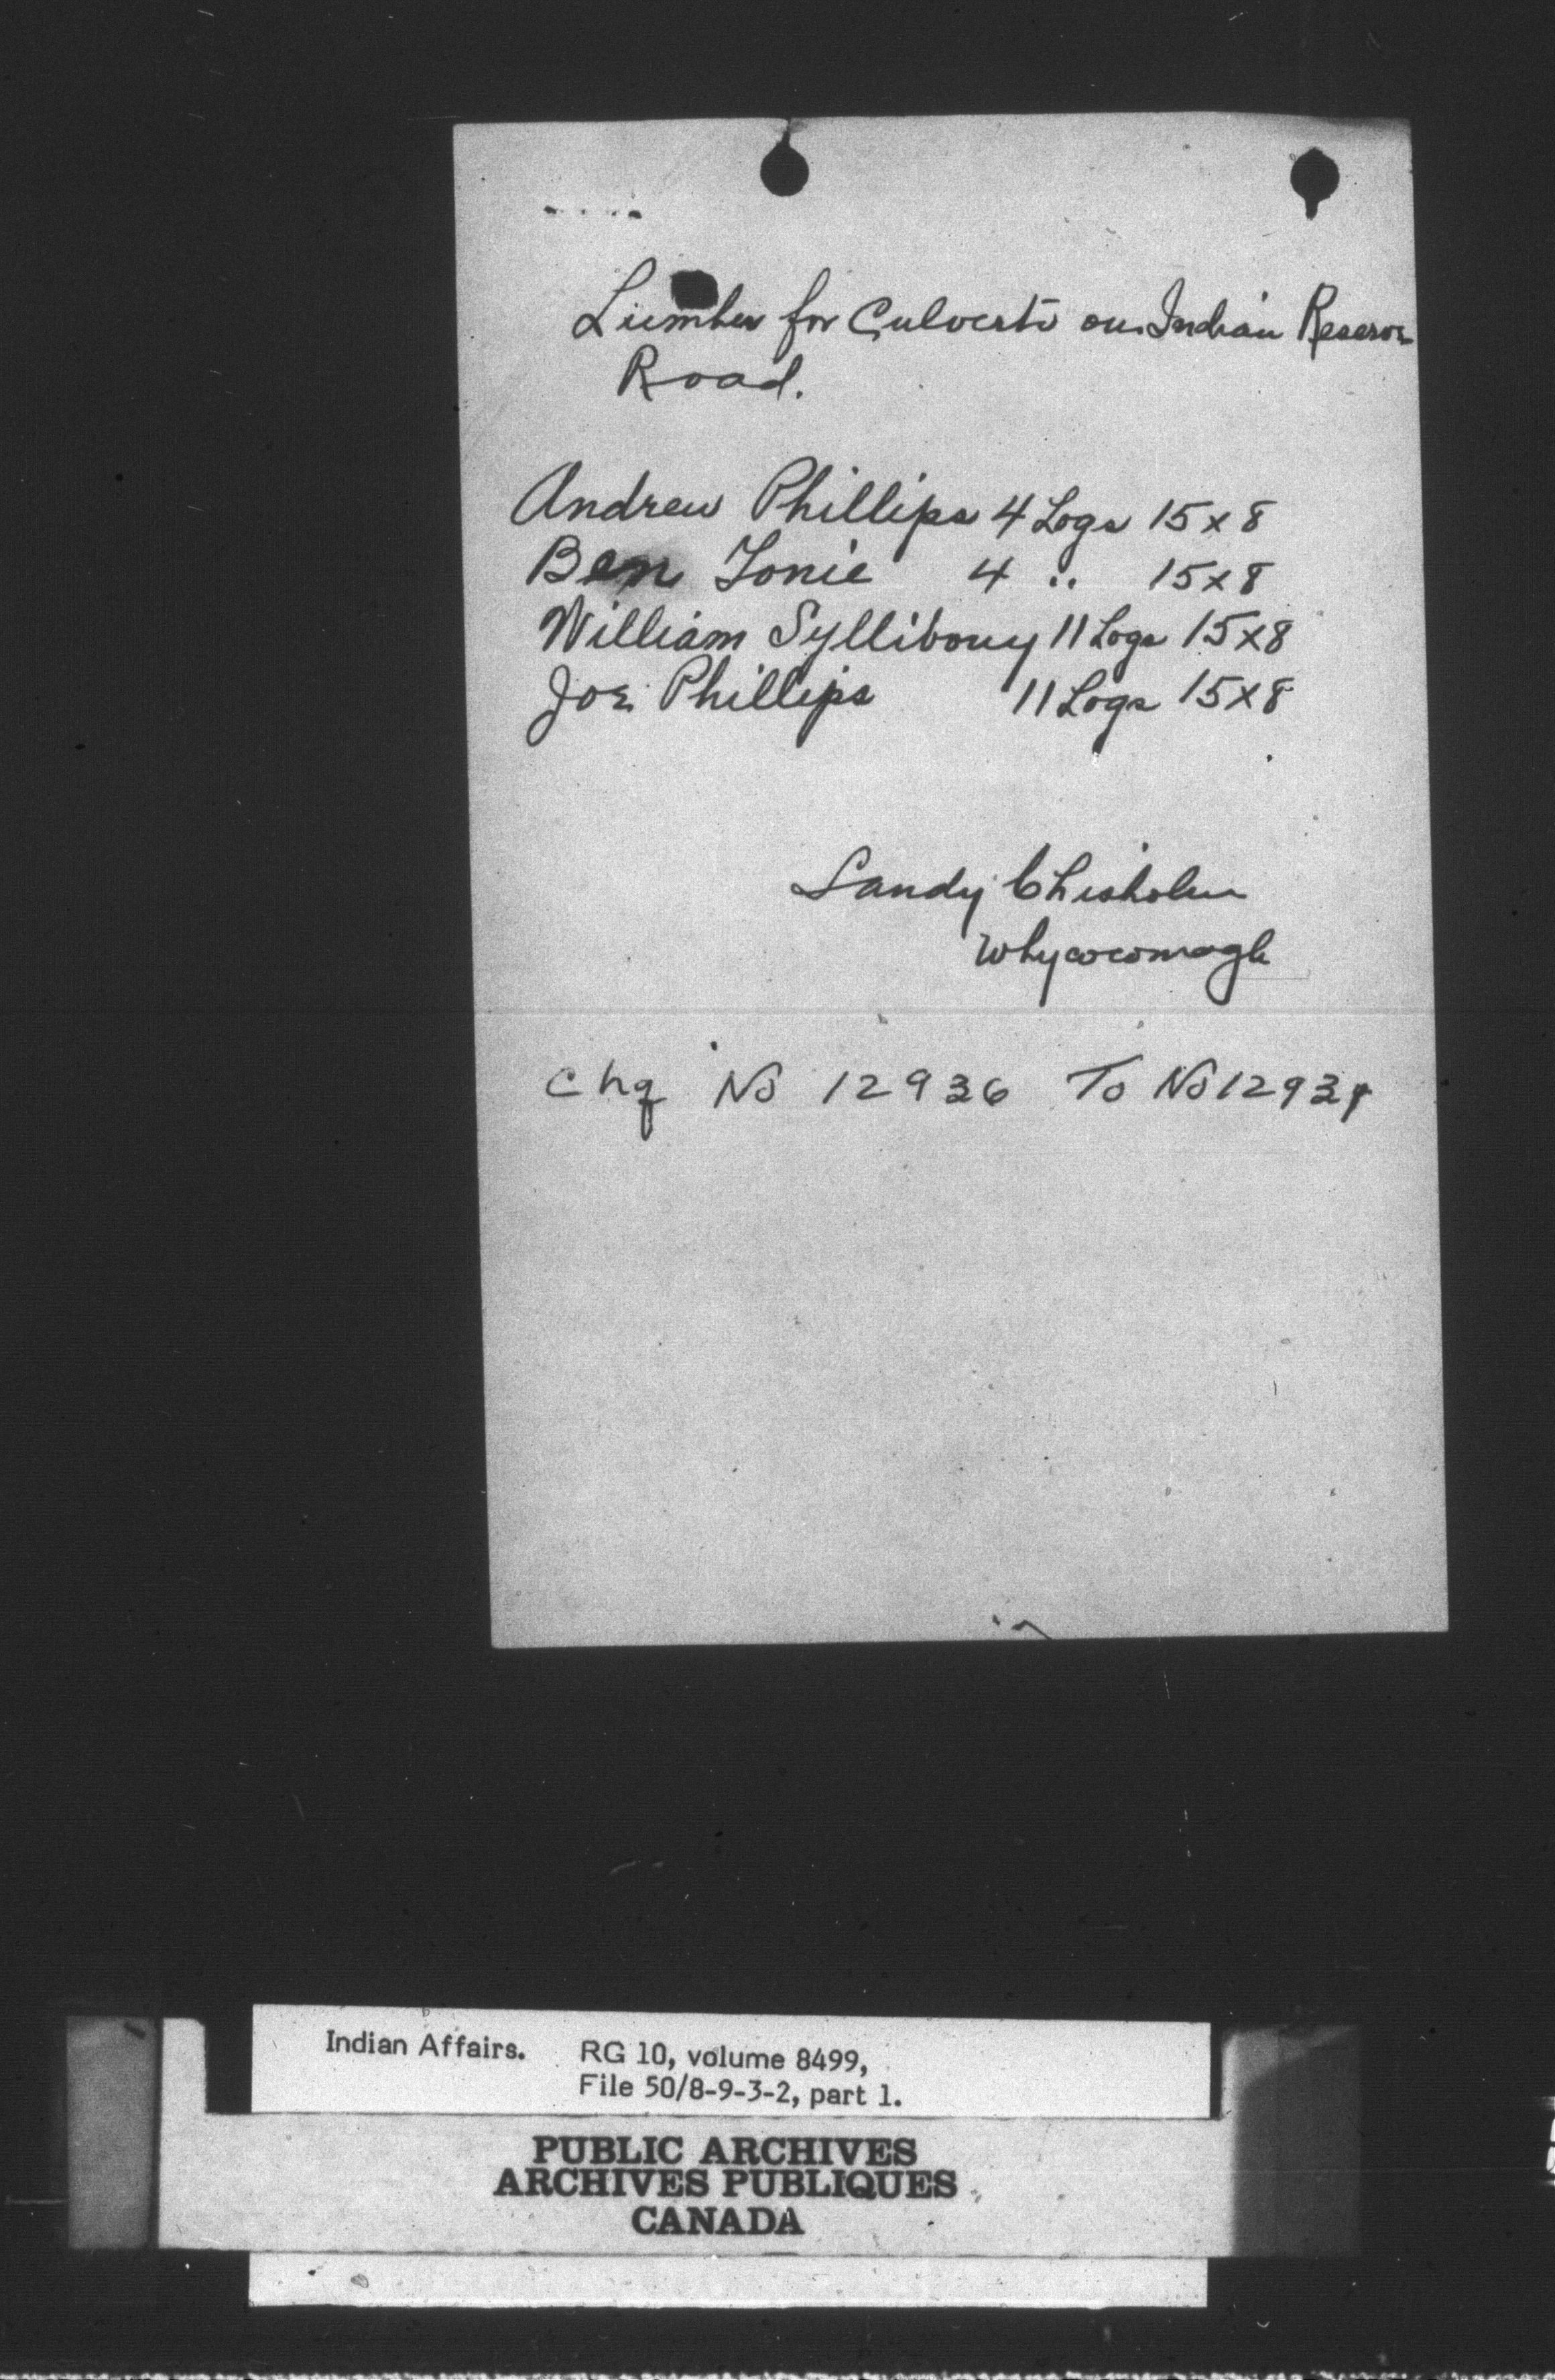 Lumber for Culverts on Indian Reserve
Road.
Andrew Phillips 4 Logs 15 x 8
Ben Tonie 4 " 15 x 8
William Syllibouy 11 Logs 15 x 8
Joe Phillips 11 Logs 15 x 8
Sandy Chisholm
Whycocomagh
Chq No 12936 To No
Indian Affairs. RG 10, volume 8499,
File 50/8-9-3-2, part 1.
PUBLIC ARCHIVES
ARCHIVES PUBLIQUES
CANADA